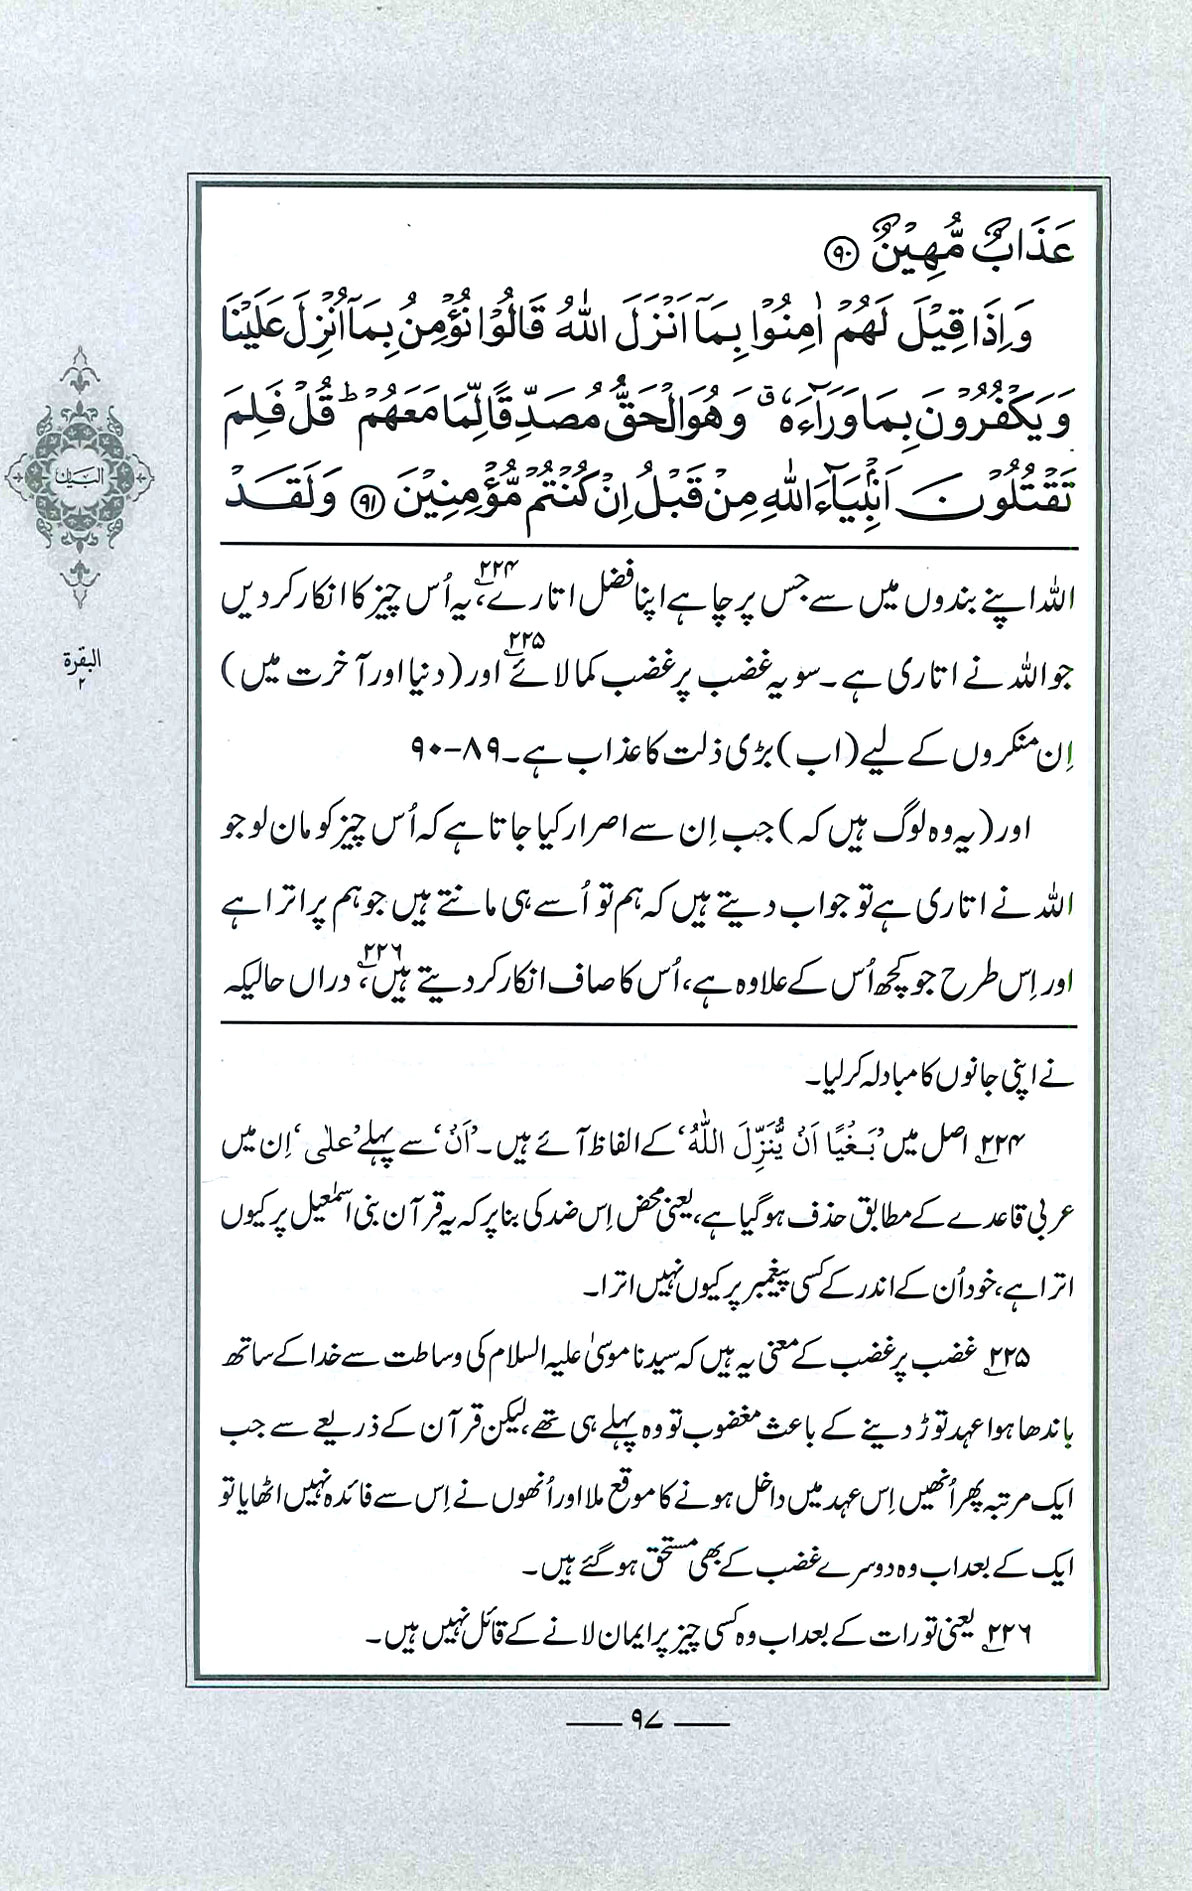 عَذَابٌ مُّهِيْنٌ ﴿۹۰﴾
وَ اِذَا قِيْلَ لَهُمْ اٰمِنُوْا بِمَآ اَنْزَلَ اللّٰهُ قَالُوْا نُؤْمِنُ بِمَآ اُنْزِلَ عَلَيْنَا
وَ يَكْفُرُوْنَ بِمَا وَرَآءَهٗ ۚ وَ هُوَ الْحَقُّ مُصَدِّقًا لِّمَا مَعَهُمْ ؕ قُلْ فَلِمَ
تَقْتُلُوْنَ اَنْۢبِيَآءَ اللّٰهِ مِنْ قَبْلُ اِنْ كُنْتُمْ مُّؤْمِنِيْنَ ﴿۹۱﴾ وَ لَقَدْ
البیان
البقرۃ
۲
اللہ اپنے بندوں میں سے جس پر چاہے اپنا فضل اتارے۲۲۴، یہ اُس چیز کا انکار کر دیں
جو اللہ نے اتاری ہے۔ سو یہ غضب پر غضب کما لائے۲۲۵ اور (دنیا اور آخرت میں)
اِن منکروں کے لیے (اب) بڑی ذلت کا عذاب ہے۔ ۸۹-۹۰
اور (یہ وہ لوگ ہیں کہ) جب اِن سے اصرار کیا جاتا ہے کہ اُس چیز کو مان لو جو
اللہ نے اتاری ہے تو جواب دیتے ہیں کہ ہم تو اُسے ہی مانتے ہیں جو ہم پر اترا ہے
اور اِس طرح جو کچھ اُس کے علاوہ ہے، اُس کا صاف انکار کر دیتے ہیں۲۲۶، دراں حالیکہ
نے اپنی جانوں کا مبادلہ کر لیا۔
۲۲۴ اصل میں ’بَغْيًا اَنْ يُّنَزِّلَ اللّٰهُ‘ کے الفاظ آئے ہیں۔ ’اَنْ‘ سے پہلے ’علٰی‘ اِن میں
عربی قاعدے کے مطابق حذف ہو گیا ہے، یعنی محض اِس ضد کی بنا پر کہ یہ قرآن بنی اسمٰعیل پر کیوں
اترا ہے، خود اُن کے اندر کے کسی پیغمبر پر کیوں نہیں اترا۔
۲۲۵ غضب پر غضب کے معنی یہ ہیں کہ سیدنا موسیٰ علیہ السلام کی وساطت سے خدا کے ساتھ
باندھا ہوا عہد توڑ دینے کے باعث مغضوب تو وہ پہلے ہی تھے، لیکن قرآن کے ذریعے سے جب
ایک مرتبہ پھر اُنھیں اِس عہد میں داخل ہونے کا موقع ملا اور اُنھوں نے اِس سے فائدہ نہیں اٹھایا تو
ایک کے بعد اب وہ دوسرے غضب کے بھی مستحق ہو گئے ہیں۔
۲۲۶ یعنی تورات کے بعد اب وہ کسی چیز پر ایمان لانے کے قائل نہیں ہیں۔
—— ۹۷ ——